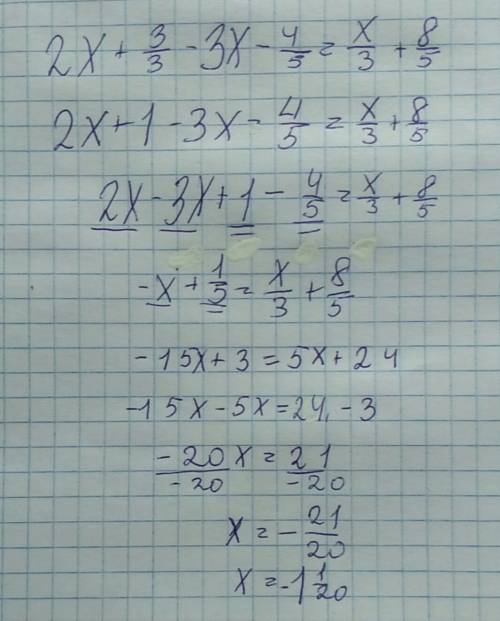 2x + 3/3 - 3x - 4/5 = x/3 + 8/5
2x + 1 - 3x - 4/5 = x/3 + 8/5
2x - 3x + 1 - 4/5 = x/3 + 8/5
-x + 1/5 = x/3 + 8/5
-15x + 3 = 5x + 24
-15x - 5x = 24 - 3
-20/-20 x = 21/-20
x = - 21/20
x = -1 1/20